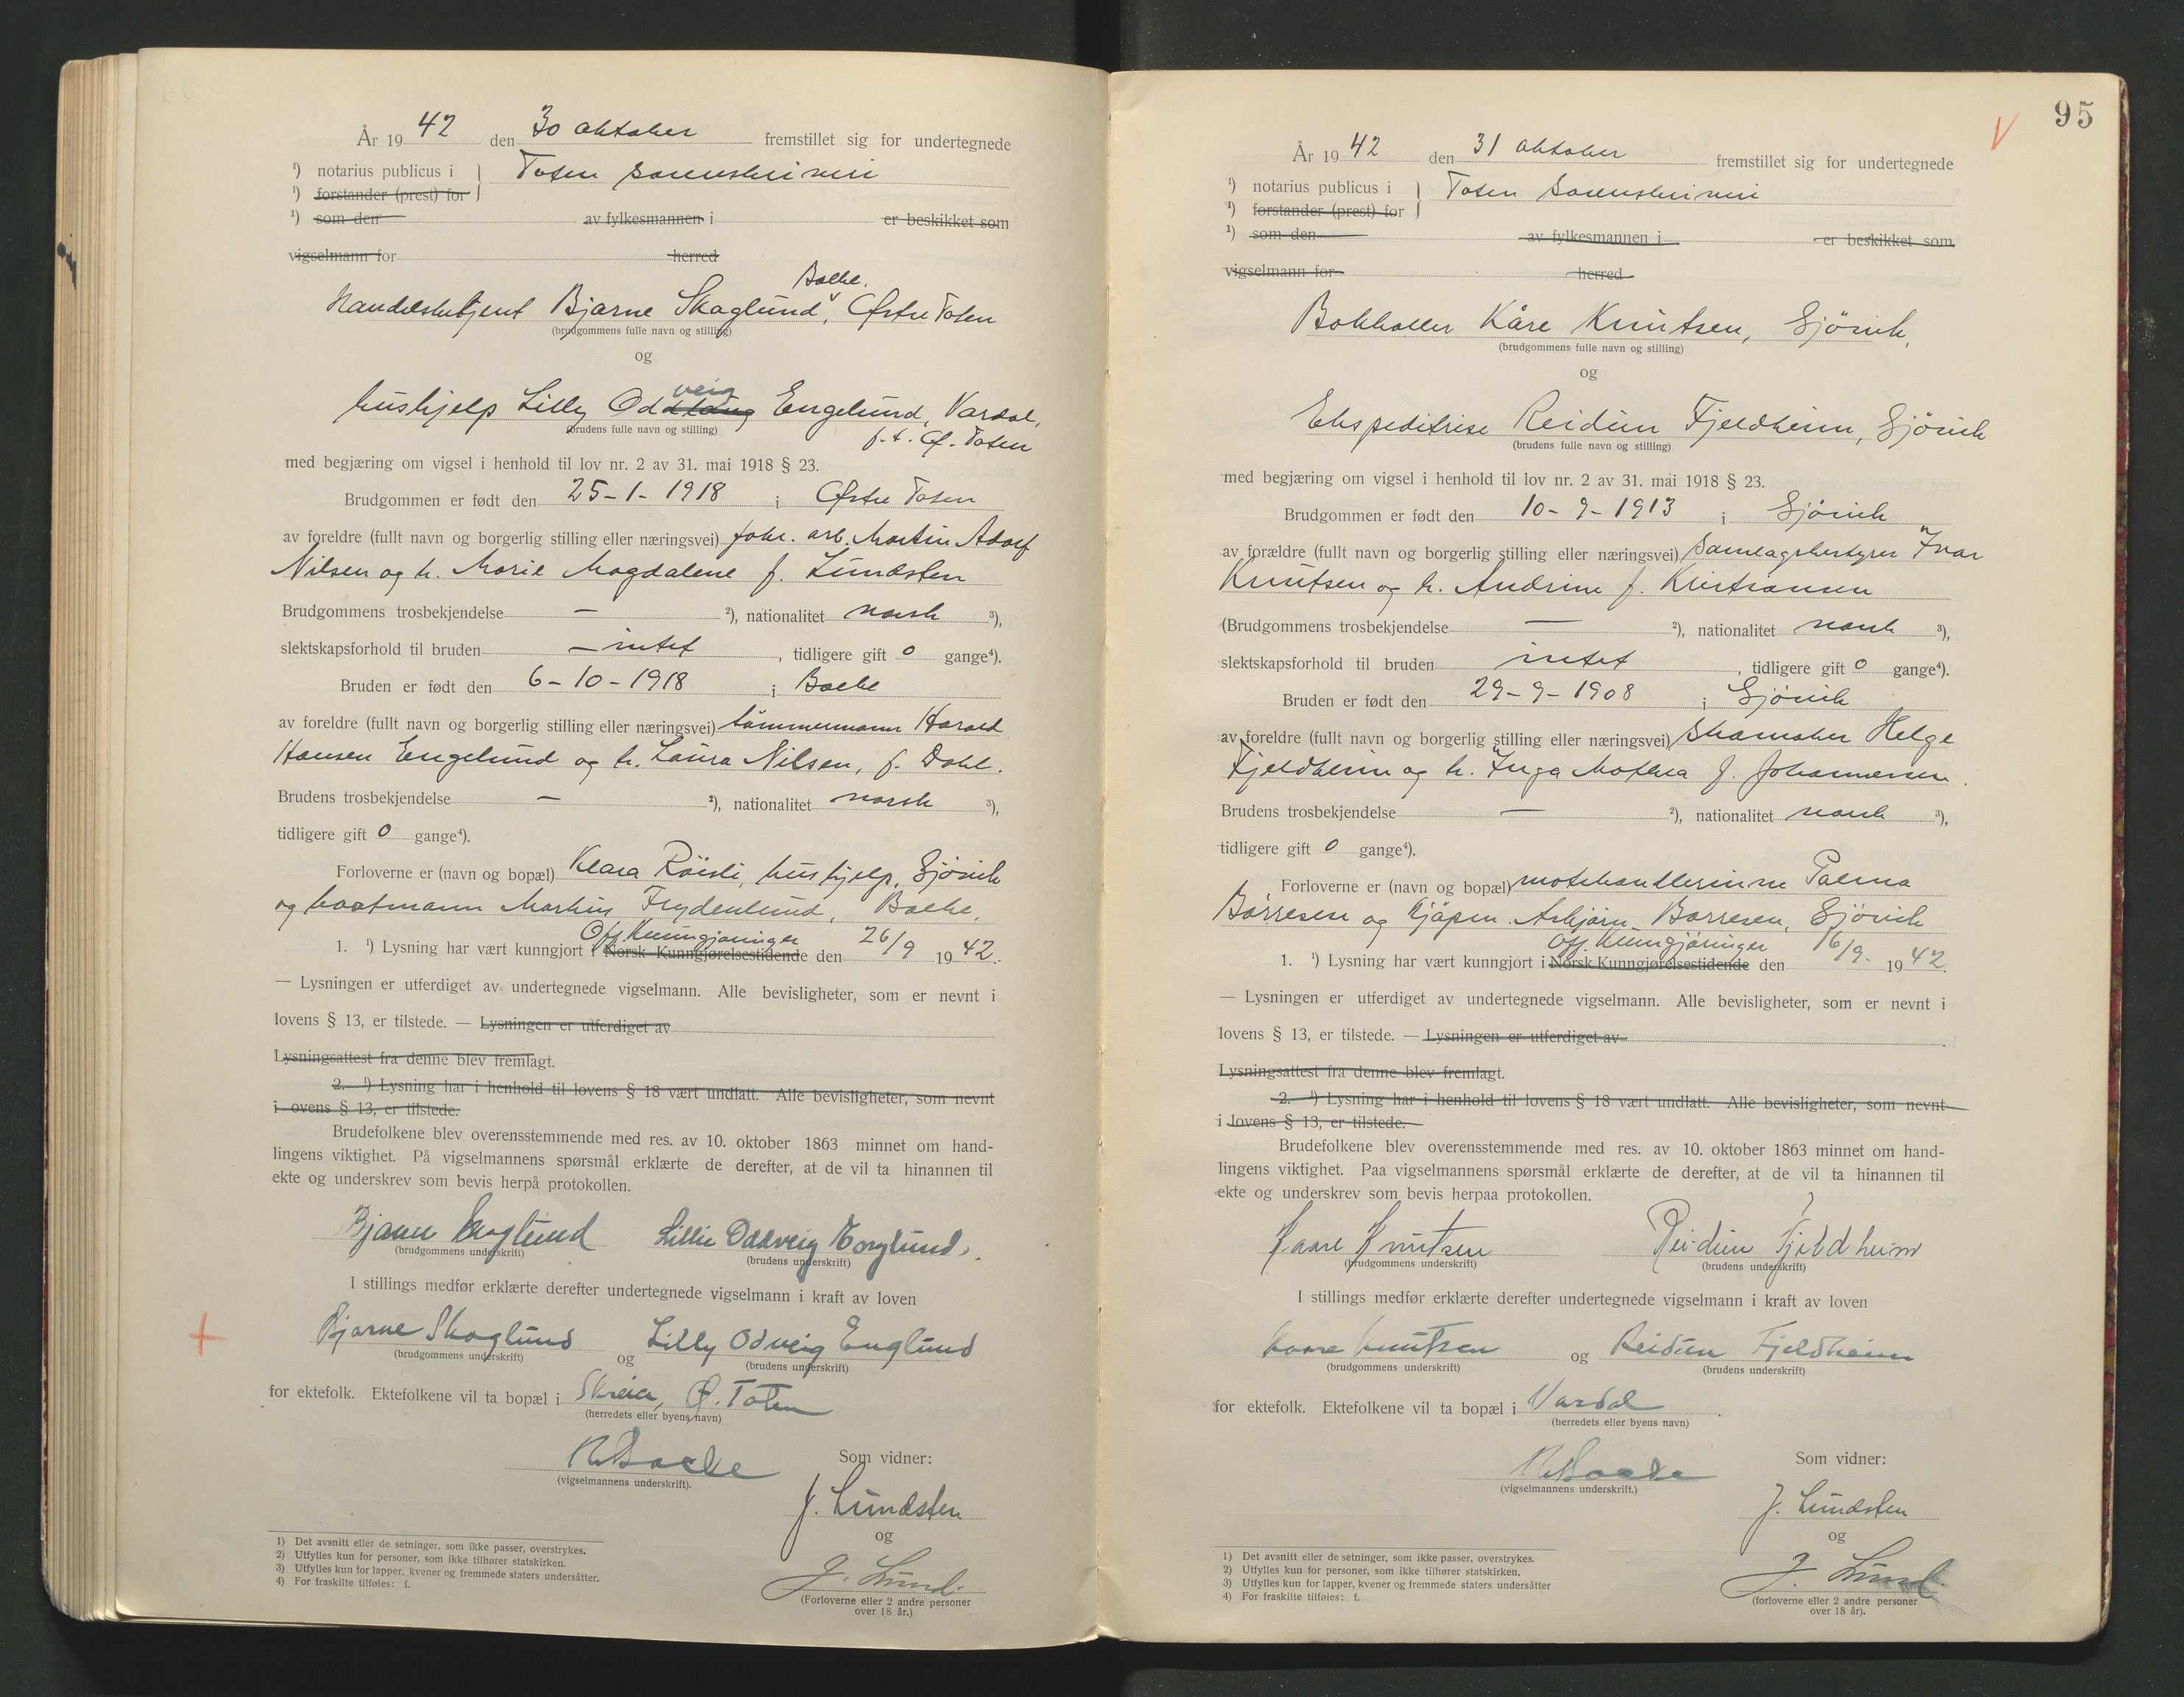 År 1942 den 30 oktober fremstillet sig for undertegnede
¹) notarius publicus i } Toten sorenskriveri
¹) forstander (prest) for
¹) som den av fylkesmannen i er beskikket som
vigselmann for herred
Bølke.
Handelsbetjent Bjarne Skaglund, Østre Toten
(brudgommens fulle navn og stilling)
og
veig
hushjelp Lilly Odd Engelund, Vardal,
(brudens fulle navn og stilling)
f.t. Ø. Toten
med begjæring om vigsel i henhold til lov nr. 2 av 31. mai 1918 § 23.
Brudgommen er født den 25-1-1918 i Østre Toten
av foreldre (fullt navn og borgerlig stilling eller næringsvei) fabr. arb. Martin Adolf
Nilsen og h. Marie Magdalene f. Lundsten
Brudgommens trosbekjendelse — ²), nationalitet norsk ³),
slektskapsforhold til bruden — intet, tidligere gift 0 gange⁴).
Bruden er født den 6-10-1918 i Bølke
av foreldre (fullt navn og borgerlig stilling eller næringsvei) tømmermann Harald
Hansen Engelund og h. Laura Nilsen, f. Dahl.
Brudens trosbekjendelse — ²), nationalitet norsk ³),
tidligere gift 0 gange⁴).
Forloverne er (navn og bopæl) Klara Röisli, hushjelp, Gjövik
og Martin Frydenlund, Bølke,
Off. Kunngjøringer
1. ¹) Lysning har vært kunngjort i Norsk Kunngjørelsestidende den 26/9 1942.
— Lysningen er utferdiget av undertegnede vigselmann. Alle bevisligheter, som er nevnt i
lovens § 13, er tilstede. — Lysningen er utferdiget av
Lysningsattest fra denne blev fremlagt.
2. ¹) Lysning har i henhold til lovens § 18 vært undlatt. Alle bevisligheter, som nevnt
i ovens § 13, er tilstede.
Brudefolkene blev overensstemmende med res. av 10. oktober 1863 minnet om hand-
lingens viktighet. På vigselmannens spørsmål erklærte de derefter, at de vil ta hinannen til
ekte og underskrev som bevis herpå protokollen.
Bjarne Skoglund Lillie Oddveig Englund.
(brudgommens underskrift) (brudens underskrift)
I stillings medfør erklærte derefter undertegnede vigselmann i kraft av loven
Bjarne Skoglund og Lilly Odveig Englund
(brudgommens underskrift) (brudens underskrift)
for ektefolk. Ektefolkene vil ta bopæl i Skreia, Ø. Toten
(herredets eller byens navn)
(vigselmannens underskrift).
Som vidner:
J. Lundsten
og
J. Lund.
(Forloverne eller 2 andre personer
over 18 år.)
1) Det avsnitt eller de setninger, som ikke passer, overstrykes.
2) Utfylles kun for personer, som ikke tilhører statskirken.
3) Utfylles kun for lapper, kvener og fremmede staters undersåtter.
4) For fraskilte tilføies: f.
95
År 1942 den 31 oktober fremstillet sig for undertegnede
¹) notarius publicus i } Toten sorenskriveri
¹) forstander (prest) for
¹) som den av fylkesmannen i er beskikket som
vigselmann for herred
Bokholder Kåre Knutsen, Gjövik,
(brudgommens fulle navn og stilling)
og
Ekspeditrise Reidun Fjeldheim, Gjövik
(brudens fulle navn og stilling)
med begjæring om vigsel i henhold til lov nr. 2 av 31. mai 1918 § 23.
Brudgommen er født den 10-9-1913 i Gjövik
av forældre (fullt navn og borgerlig stilling eller næringsvei) samlagsbestyrer Ivar
Knutsen og h. Andrine f. Kristiansen
(Brudgommens trosbekjendelse — ²), nationalitet norsk ³),
slektskapsforhold til bruden intet, tidligere gift 0 gange⁴).
Bruden er født den 29-9-1908 i Gjövik
av foreldre (fullt navn og borgerlig stilling eller næringsvei) skomaker Helge
Fjeldheim og h. Inga Mathea f. Johannesen.
Brudens trosbekjendelse — ²), nationalitet norsk ³),
tidligere gift 0 gange⁴).
Forloverne er (navn og bopæl) motehandlerinne Palma
Børresen og kjøpm. Asbjørn Børresen, Gjövik
Off. Kunngjøringer
1. ¹) Lysning har vært kunngjort i Norsk Kunngjørelsestidende den 16/9. 1942.
— Lysningen er utferdiget av undertegnede vigselmann. Alle bevisligheter, som er nevnt i
lovens § 13, er tilstede. — Lysningen er utferdiget av
Lysningsattest fra denne blev fremlagt.
2. ¹) Lysning har i henhold til lovens § 18 vært undlatt. Alle bevisligheter, som nevnt
i lovens § 13, er tilstede.
Brudefolkene blev overensstemmende med res. av 10. oktober 1863 minnet om hand-
lingens viktighet. Paa vigselmannens spørsmål erklærte de derefter, at de vil ta hinannen til
ekte og underskrev som bevis herpaa protokollen.
Kaare Knutsen Reidun Fjeldheim
(brudgommens underskrift) (brudens underskrift)
I stillings medfør erklærte derefter undertegnede vigselmann i kraft av loven
Kaare Knutsen og Reidun Fjeldheim
(brudgommens underskrift) (brudens underskrift)
for ektefolk. Ektefolkene vil ta bopæl i Vardal.
(herredets eller byens navn)
(vigselmannens underskrift.)
Som vidner:
J. Lundsten
og
J. Lund
(forloverne eller 2 andre personer
over 18 år).
1) Det avsnitt eller de setninger, som ikke passer, overstrykes.
2) Utfylles kun for personer, som ikke tilhører statskirken.
3) Utfylles kun for lapper, kvener og fremmede staters undersåtter
4) For fraskilte tilføies: f.